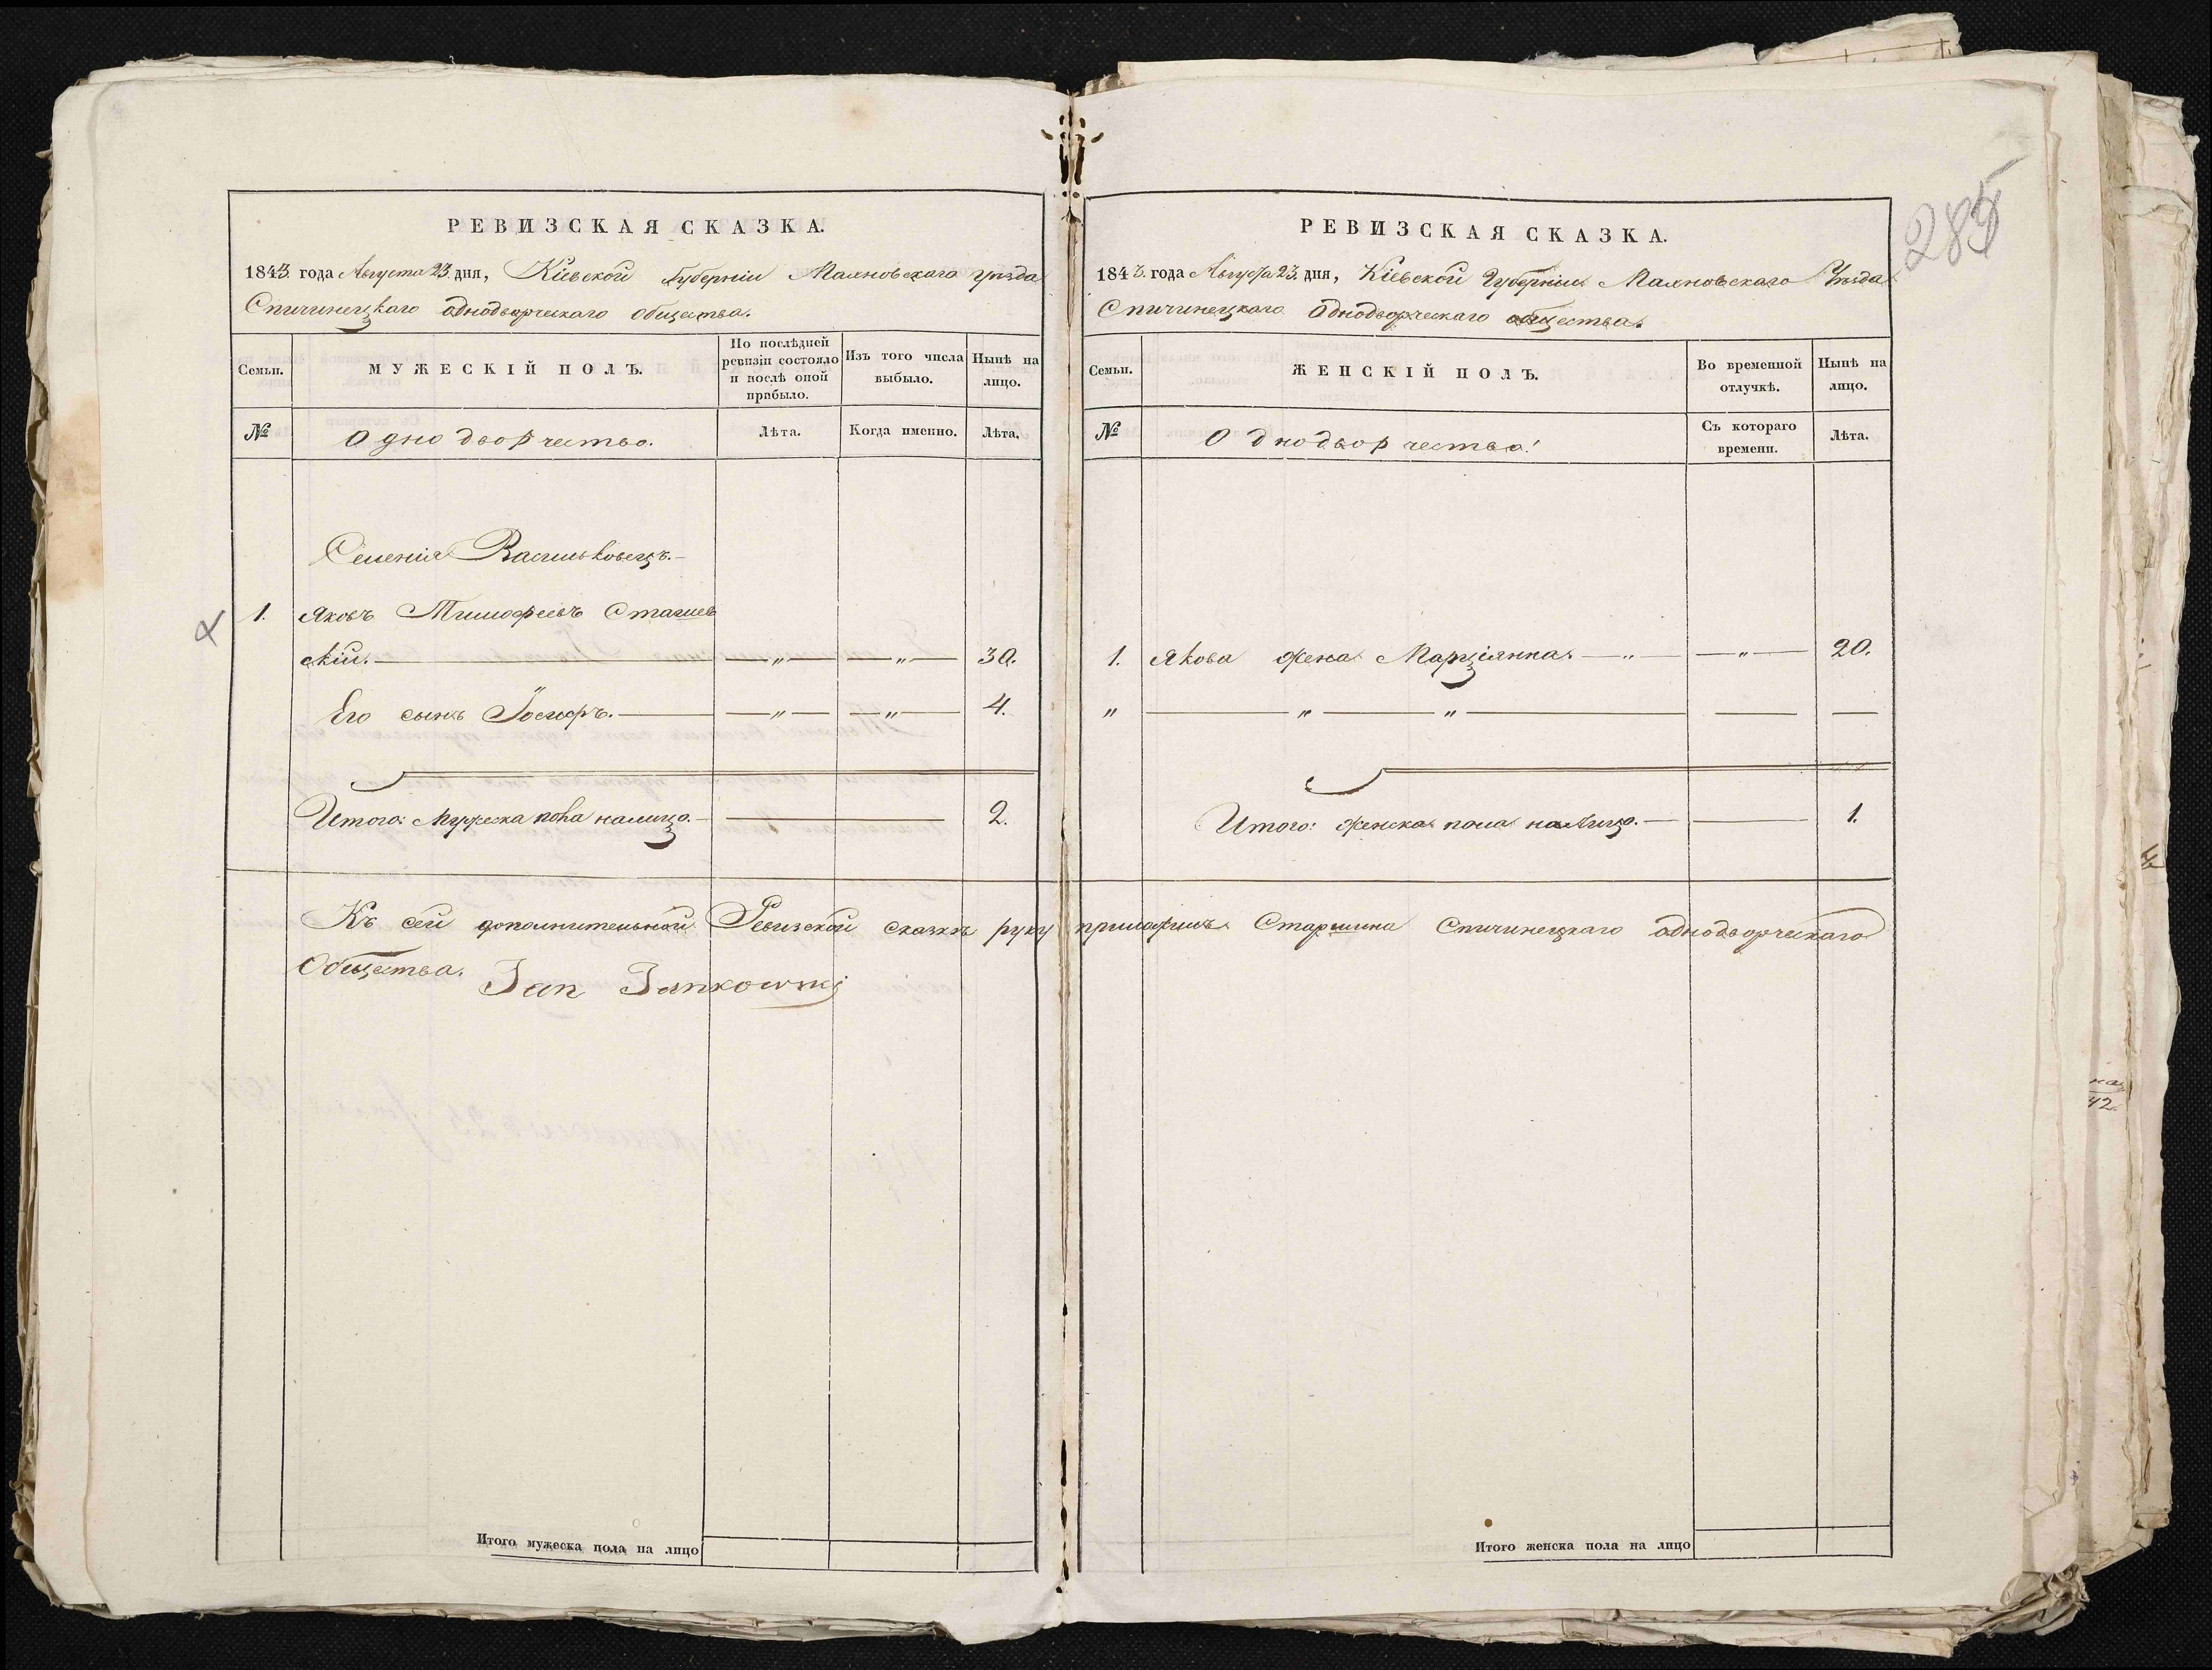 285
РЕВИЗСКАЯ СКАЗКА.
1843 года Августа 23 дня, Кіевской Губерніи Махновскаго уѣзда
Спичинецкаго однодворческаго общества.
Семьи.
МУЖЕСКІЙ ПОЛЪ.
По послѣдней ревизіи состояло и послѣ оной прибыло.
Изъ того числа выбыло.
Нынѣ на лицо.
№
Однодворчество.
Лѣта.
Когда именно.
Лѣта.
Селенія Васильковецъ.
1. Яковъ Тимофеевъ Стагиев
скій. — „ — — „ — 30.
Его сынъ Іосифъ. — „ — — „ — 4.
Итого: мужеска пола налицо. — 2.
РЕВИЗСКАЯ СКАЗКА.
1843 года Августа 23 дня, Кіевской Губерніи Махновскаго Уѣзда
Спичинецкаго Однодворческаго общества.
Семьи.
ЖЕНСКІЙ ПОЛЪ.
Во временной отлучкѣ.
Нынѣ на лицо.
№
Однодворчество.
Съ котораго времени.
Лѣта.
1. Якова жена Марціянна. — „ — — „ — 20.
„ — „ — „ — — —
Итого: женска пола налицо. — 1.
Къ сей дополнительной Ревизской сказкѣ руку приложилъ Старшина Спичинецкаго однодворческаго
Общества. Jan Jankowski
Итого мужеска пола на лицо
Итого женска пола на лицо